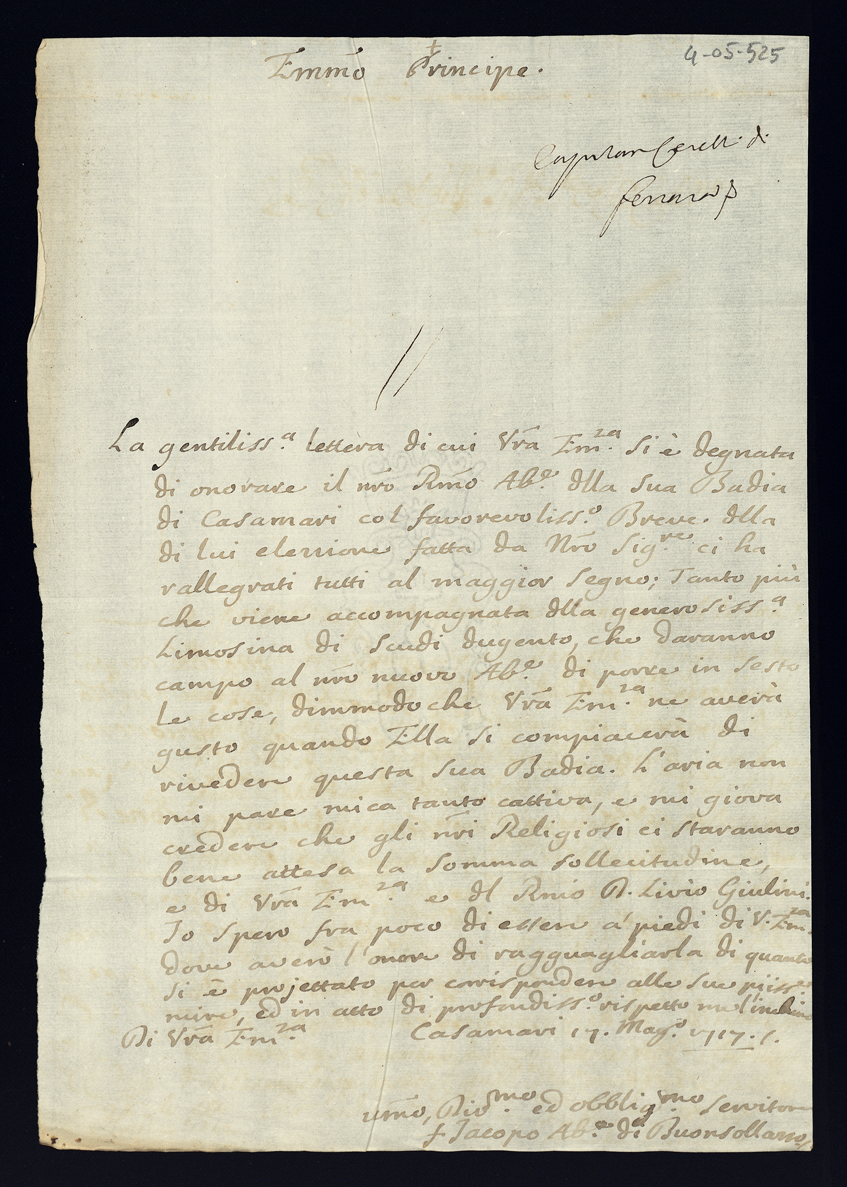 4-05-525
+
Emmo Principe.
di
La gentiliss.a lettera di cui Vra Em.za si è degnata
di onorare il nro Rmo Ab.e dlla sua Badia
di Casamari col favorevoliss.o Breve dlla
di lui elezzione fatta da Nro Sig.re ci ha
rallegrati tutti al maggior segno; Tanto più
che viene accompagnata dlla generosiss.a
Limosina di scudi dugento, che daranno
campo al nro nuovo Ab.e di porre in sesto
le cose, dimmodo che Vra Em.za ne averà
gusto quando Ella si compiacerà di
rivedere questa sua Badia. L'aria non
mi pare mica tanto cattiva, e mi giova
credere che gli nri Religiosi ci staranno
bene attesa la somma sollecitudine,
e di Vra Em.za e dl Rmo P. Livio Giulini.
Io spero fra poco di essere a' piedi di V. Em.za
dove averò l'onore di ragguagliarla di quanto
si è projettato per corrispondere alle sue piiss.e
mire, ed in atto di profondiss.o rispetto me l'inchino
Di Vra Em.za Casamari 17. Mag.o 1717.
umo, Div.mo ed obblig.mo servitore
f Jacopo Ab.e di Buonsollazzo